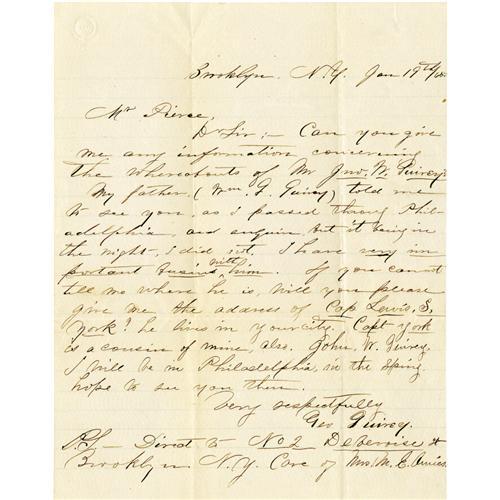 Brooklyn. N.Y. Jan 19th
Mr Pierce,
Dr Sir;— Can you give
me any information concerning
the whereabouts of Mr Jno. W. Quirey.
My father, (Wm. F. Quirey) told me
to see you, as I passed through Phil-
adelphia, and enquire, but it being in
the night, I did not. I have very im-
portant business with him. If you cannot
tell me where he is, will you please
give me the address of Cap Lewis, S,
York? he lives in your city. Capt York
is a cousin of mine, also. John. W. Quirey.
I will be in Philadelphia, in the Spring.
hope to see you then.
Very respectfully
Geo Quirey.
P.S.— Direct to No 2 Debevoise St
Brooklyn. N.Y. Care of Mrs. M. E.